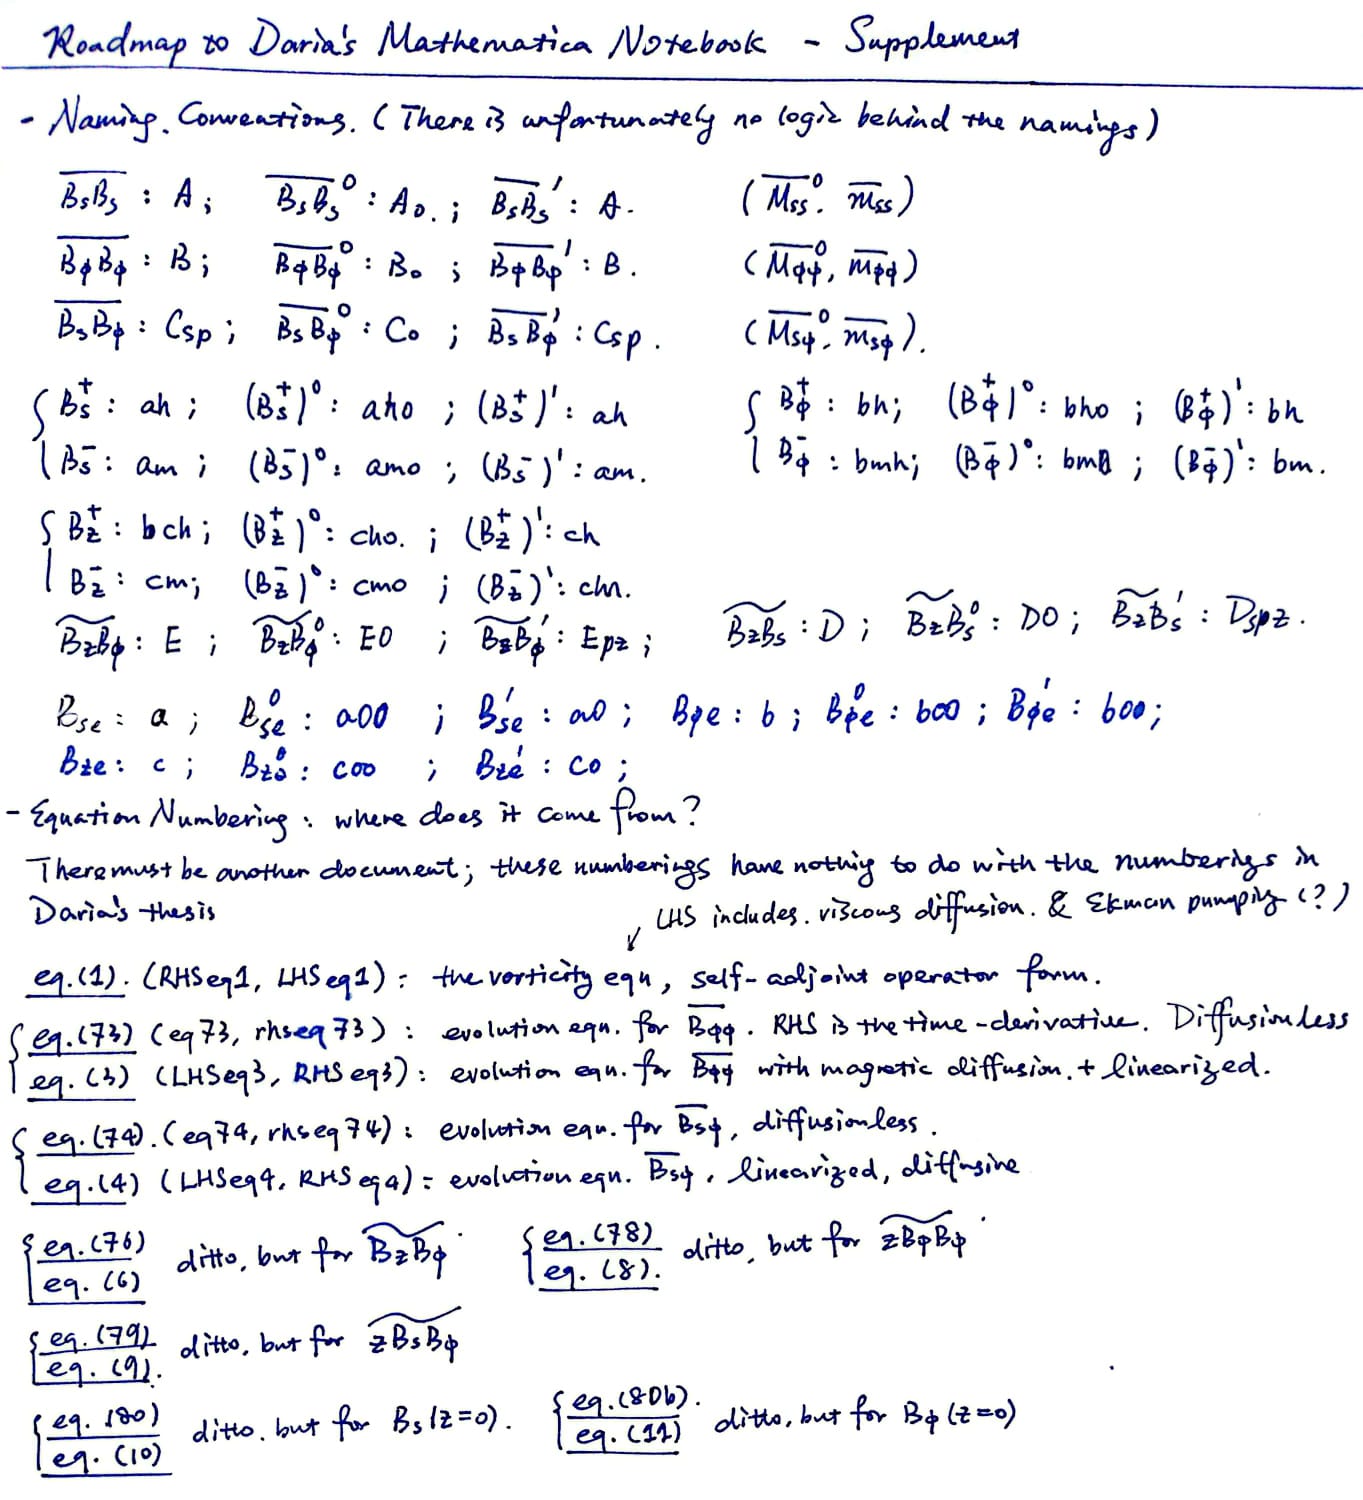 Roadmap to Daria's Mathematica Notebook - Supplement
- Naming. Conventions. (There is unfortunately no logic behind the namings)
$\overline{B_sB_s}$ : A; $\overline{B_sB_s}^0$ : A0.; $\overline{B_sB_s}'$ : A. ($\overline{M_{ss}}^0$, $\overline{m_{ss}}$)
$\overline{B_\phi B_\phi}$ : B; $\overline{B_\phi B_\phi}^0$ : B0; $\overline{B_\phi B_\phi}'$ : B. ($\overline{M_{\phi\phi}}^0$, $\overline{m_{\phi\phi}}$)
$\overline{B_sB_\phi}$ : Csp; $\overline{B_sB_\phi}^0$ : C0; $\overline{B_sB_\phi}'$ : Csp. ($\overline{M_{s\phi}}^0$, $\overline{m_{s\phi}}$).
{ $B_s^+$ : ah; $(B_s^+)^0$ : aho; $(B_s^+)'$ : ah { $B_\phi^+$ : bh; $(B_\phi^+)^0$ : bho; $(B_\phi^+)'$ : bh
$B_s^-$ : am; $(B_s^-)^0$ : amo; $(B_s^-)'$ : am. $B_\phi^-$ : bmh; $(B_\phi^-)^0$ : bm0; $(B_\phi^-)'$ : bm.
{ $B_z^+$ : bch; $(B_z^+)^0$ : cho.; $(B_z^+)'$ : ch
$B_z^-$ : cm; $(B_z^-)^0$ : cmo; $(B_z^-)'$ : cm.
$\widetilde{B_zB_\phi}$ : E; $\widetilde{B_zB_\phi}^0$ : E0; $\widetilde{B_zB_\phi}'$ : Epz; $\widetilde{B_zB_s}$ : D; $\widetilde{B_zB_s}^0$ : D0; $\widetilde{B_zB_s}'$ : Dspz.
$B_{se}$ : a; $B_{se}^0$ : a00; $B_{se}'$ : a0; $B_{\phi e}$ : b; $B_{\phi e}^0$ : b00; $B_{\phi e}'$ : b00;
$B_{ze}$ : c; $B_{ze}^0$ : c00; $B_{ze}'$ : c0;
- Equation Numbering : where does it come from?
There must be another document; these numberings have nothing to do with the numberings in
Daria's thesis
LHS includes. viscous diffusion. & Ekman pumping (?)
eq.(1). (RHSeq1, LHSeq1) : the vorticity eqn, self-adjoint operator form.
{ eq.(73) (eq73, rhseq73) : evolution eqn. for $\overline{B_{\phi\phi}}$. RHS is the time-derivative. Diffusionless
eq. (3) (LHSeq3, RHSeq3) : evolution eqn. for $\overline{B_{\phi\phi}}$ with magnetic diffusion. + linearized.
{ eq.(74). (eq74, rhseq74) : evolution eqn. for $\overline{B_{s\phi}}$, diffusionless.
eq.(4) (LHSeq4, RHSeq4) : evolution eqn. $\overline{B_{s\phi}}$, linearized, diffusive
{ eq.(76) ditto, but for $\widetilde{B_zB_\phi}$. { eq.(78) ditto, but for $\widetilde{zB_\phi B_\phi}$.
eq. (6) eq. (8).
{ eq. (79) ditto, but for $\widetilde{zB_sB_\phi}$
eq. (9).
{ eq. (80) ditto. but for $B_s$(z=0). { eq.(80b). ditto, but for $B_\phi$(z=0)
eq. (10) eq. (11)